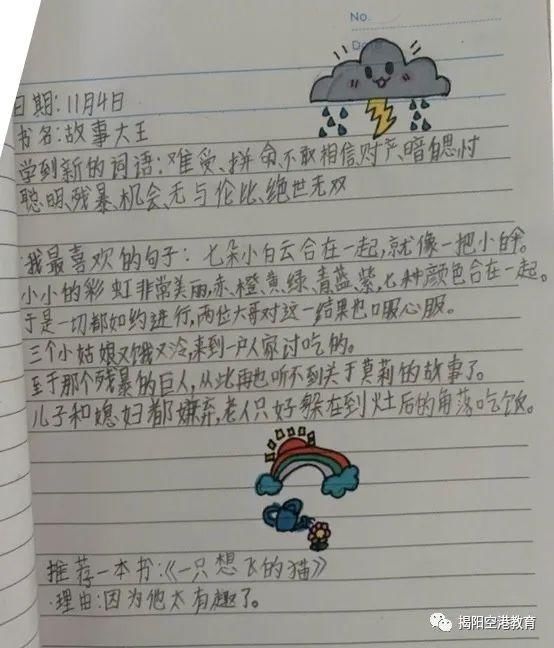 No.
Date
日期：11月4日
书名：故事大王
学到新的词语：难受、拼命、不敢相信、财产、暗自思忖
聪明、残暴、机会、无与伦比、绝世无双
我最喜欢的句子：七朵小白云合在一起，就像一把小伞。
小小的彩虹非常美丽，赤、橙、黄、绿、青、蓝、紫，七种颜色合在一起。
于是一切都如约进行，两位大哥对这一结果也口服心服。
三个小姑娘又饿又冷，来到一户人家讨吃的。
至于那个残暴的巨人，从此再也听不到关于莫莉的故事了。
儿子和媳妇都嫌弃，老人只好躲在到灶后的角落吃饭。
推荐一本书：《一只想飞的猫》
理由：因为他太有趣了。
揭阳空港教育